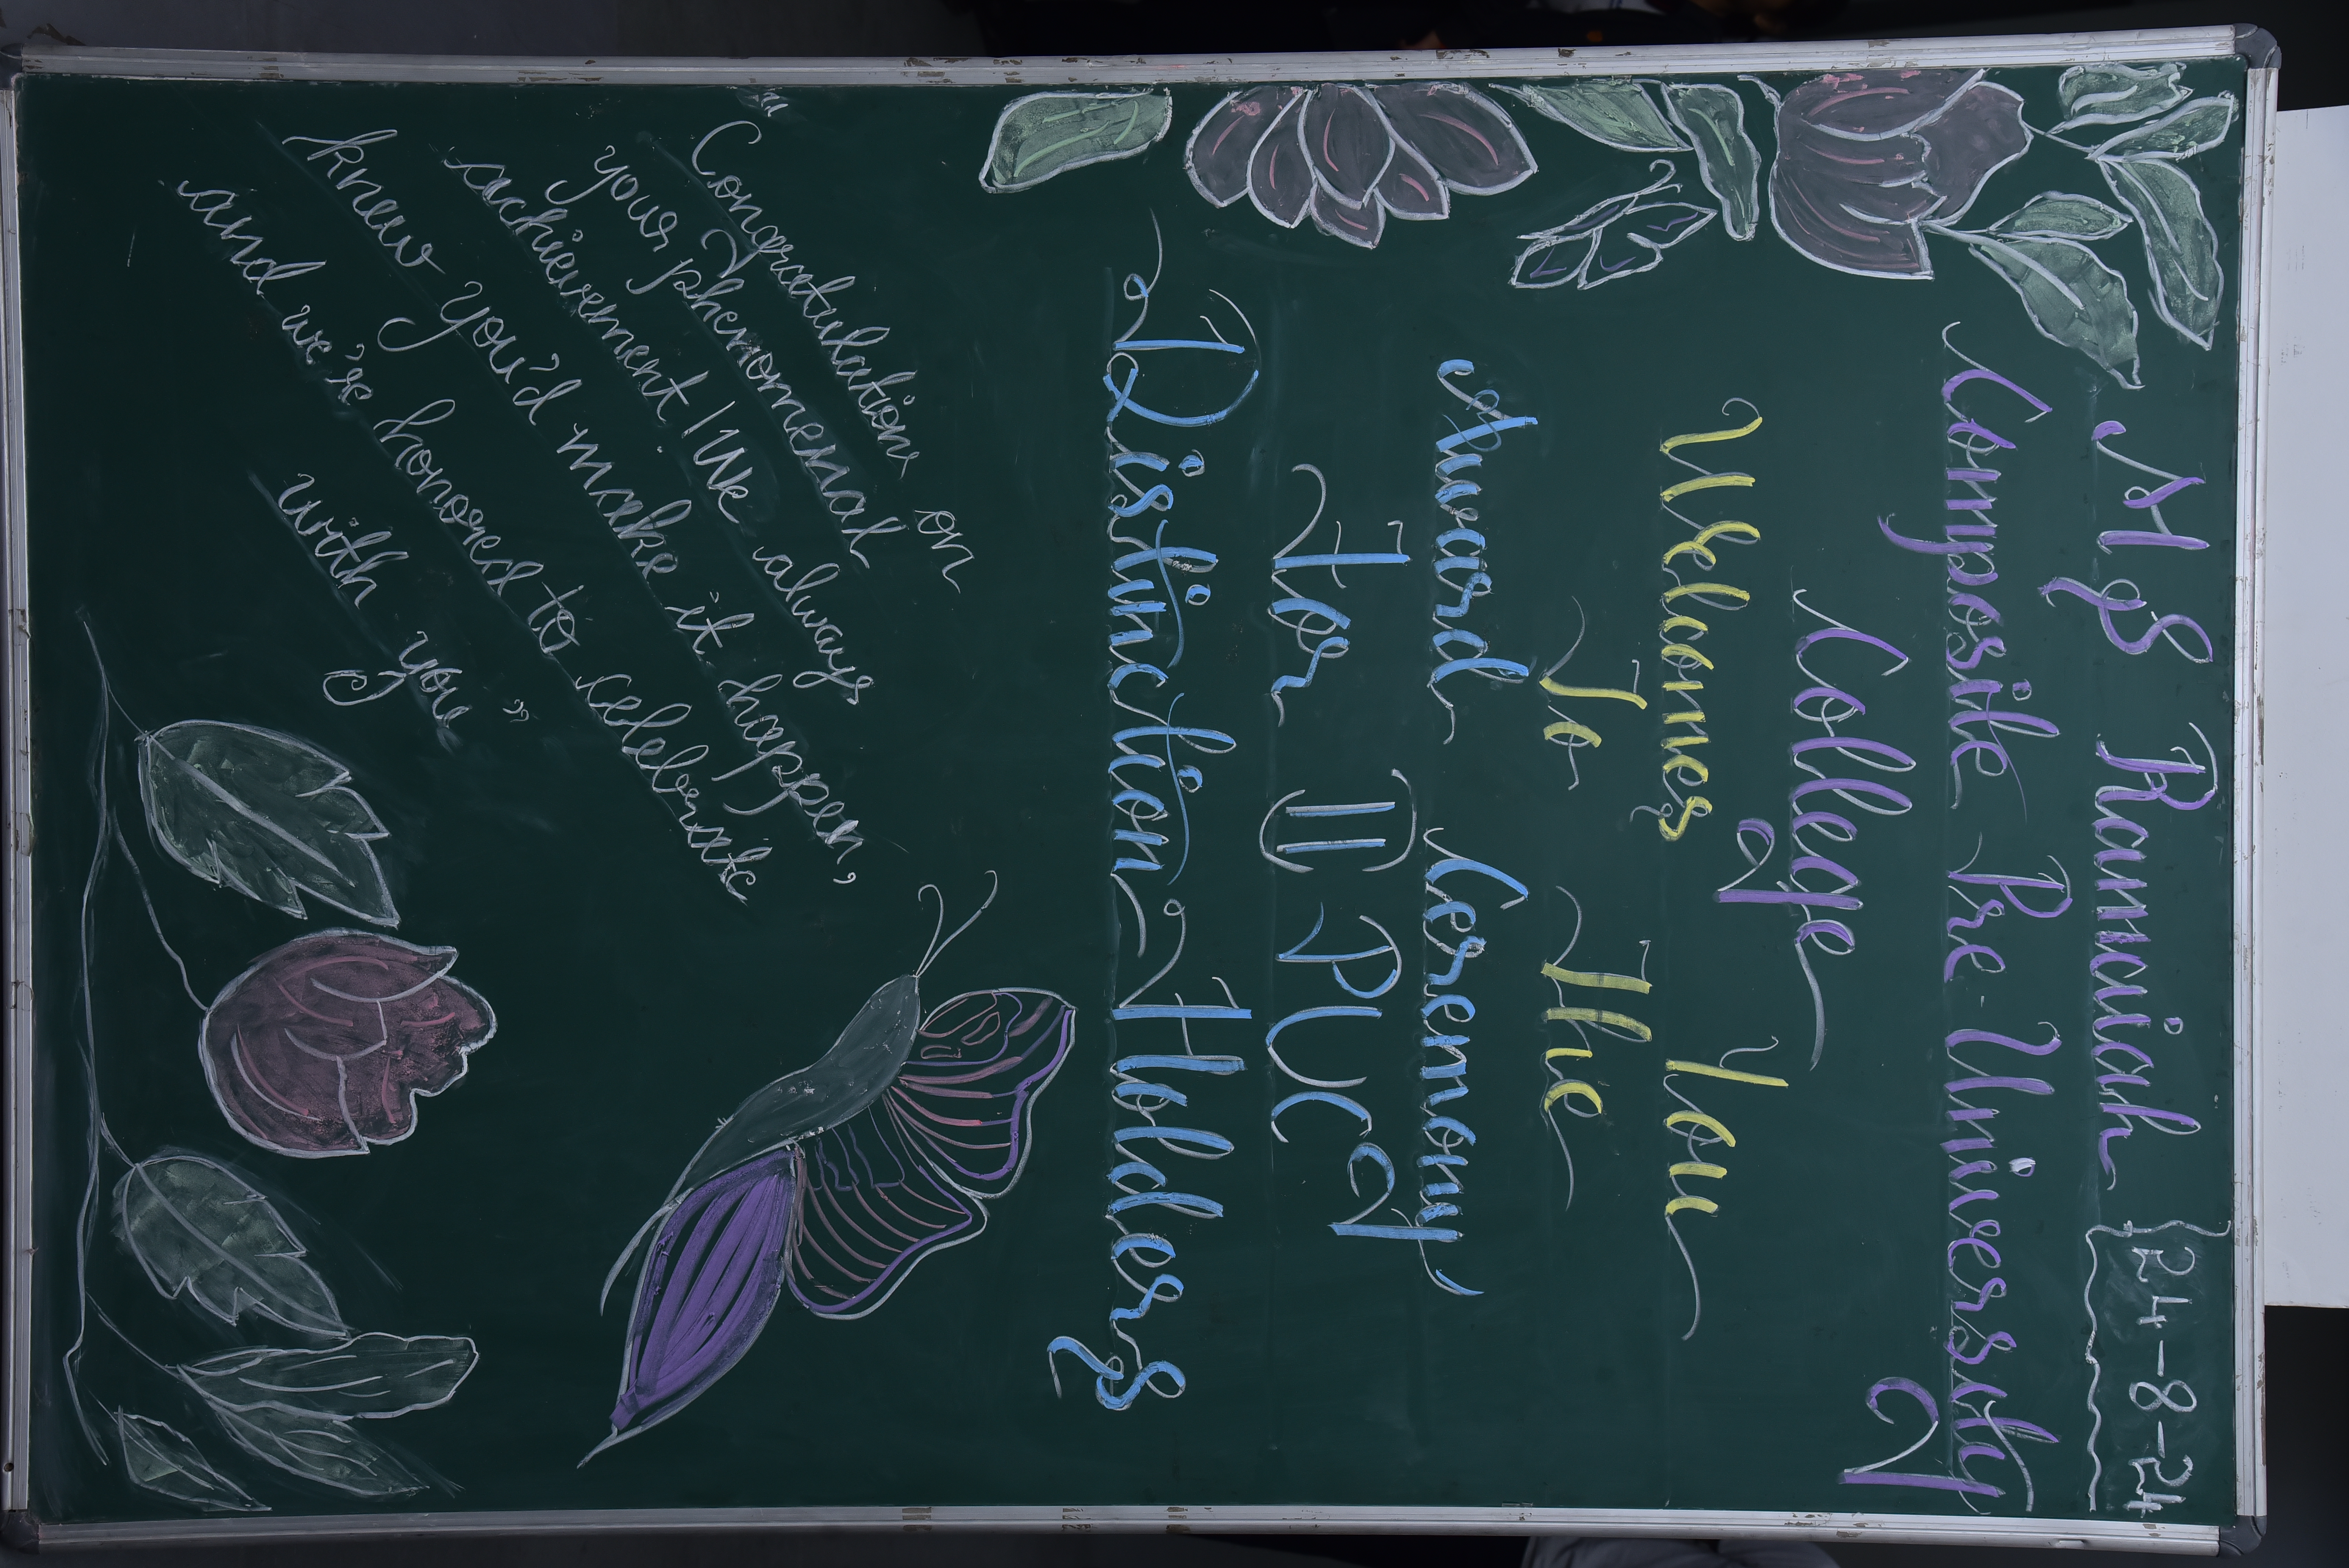 24-8-24
M S Ramaiah
Composite Pre-University
College
Welcomes You
To The
Award Ceremony
For II PUC
Distinction Holders
"Congratulations on
your phenomenal
achievement! We always
knew you'd make it happen,
and we're honored to celebrate
with you"